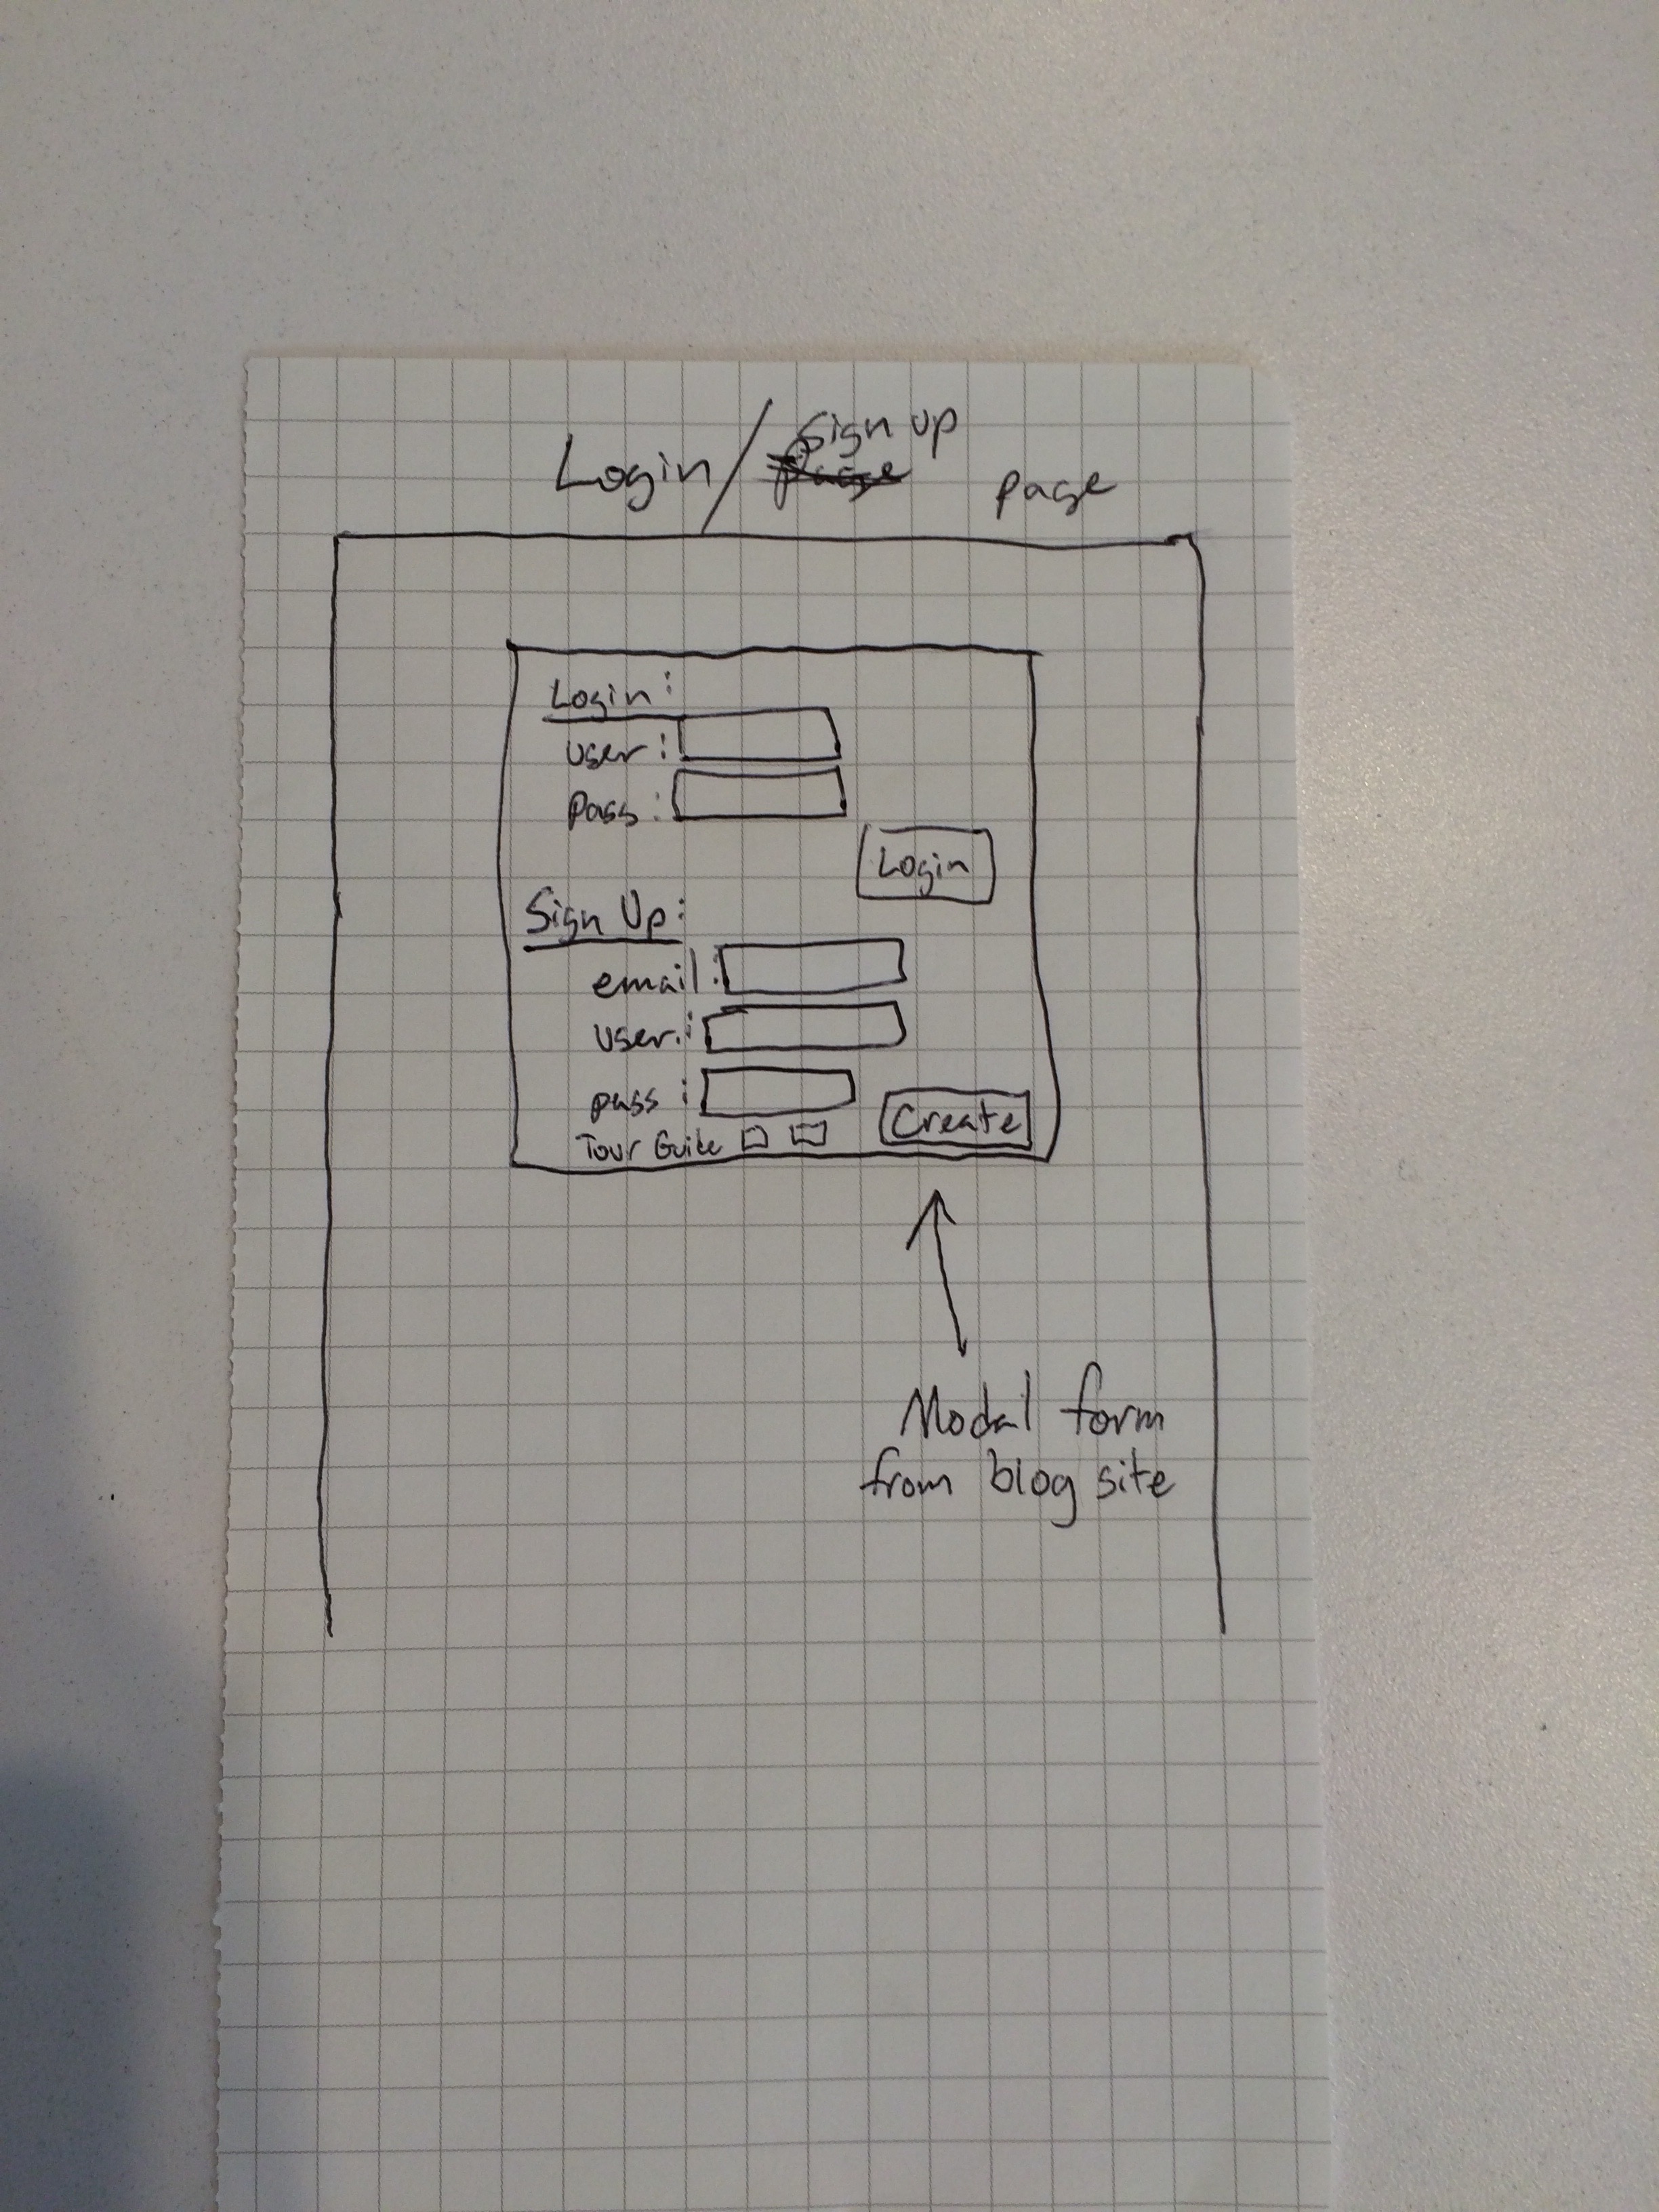 Login / Sign up page
Login:
user:
Pass:
Login
Sign Up:
email:
user:
pass:
Tour Guide
Create
Modal form
from blog site